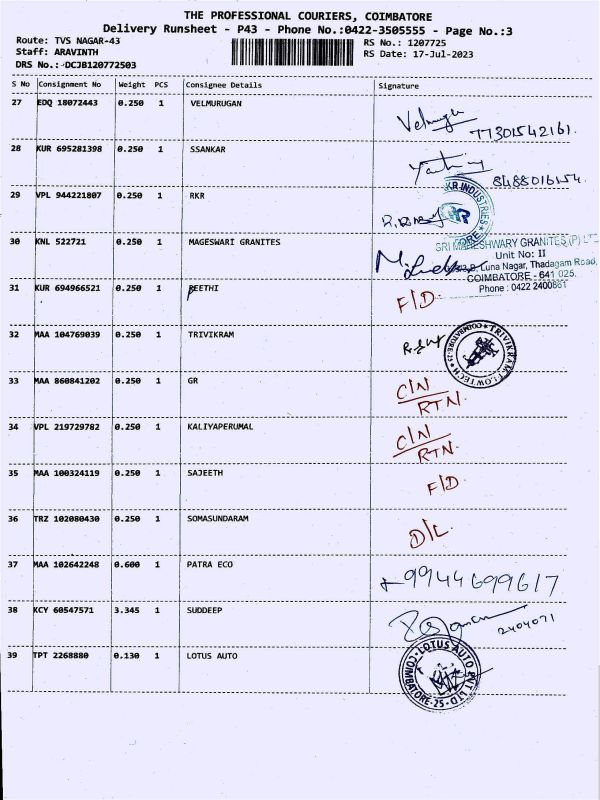 THE PROFESSIONAL COURIERS, COIMBATORE
Delivery Runsheet - P43 - Phone No.:0422-3505555 - Page No.:3
Route: TVS NAGAR-43 RS No.: 1207725
Staff: ARAVINTH RS Date: 17-Jul-2023
DRS No.:-DCJB120772503
S No Consignment No Weight PCS Consignee Details Signature
27 EDQ 18072443 0.250 1 VELMURUGAN
28 KUR 695281398 0.250 1 SSANKAR
29 VPL 944221807 0.250 1 RKR
KR INDUSTRIES
30 KNL 522721 0.250 1 MAGESWARI GRANITES
SRI MAHESHWARY GRANITES (P) LT
Unit No: II
Luna Nagar, Thadagam Road,
COIMBATORE - 641 025.
Phone : 0422 2400861
31 KUR 694966521 0.250 1 REETHI F/D.
32 MAA 104769039 0.250 1 TRIVIKRAM
TRIVIKRAM FLOWTECH COIMBATORE-25
33 MAA 860841202 0.250 1 GR C/N
RTN.
34 VPL 219729782 0.250 1 KALIYAPERUMAL C/N
RTN.
35 MAA 100324119 0.250 1 SAJEETH F/D
36 TRZ 102080430 0.250 1 SOMASUNDARAM D/L.
37 MAA 102642248 0.600 1 PATRA ECO 9944699617
38 KCY 60547571 3.345 1 SUDDEEP
2404071
39 TPT 2268880 0.130 1 LOTUS AUTO
LOTUS AUTO PVT LTD COIMBATORE-25